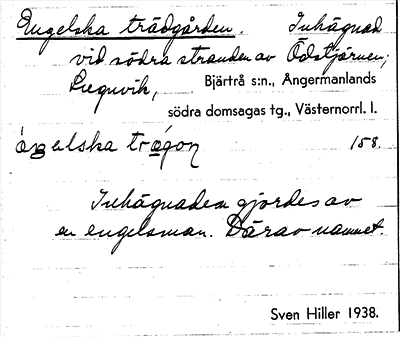 Engelska trädgården. Inhägnad
vid södra stranden av Ödstjärnen;
Bjärtrå s:n., Ångermanlands
södra domsagas tg., Västernorrl. l.
158.
Inhägnaden gjordes av
en engelsman. Därav namnet.
Sven Hiller 1938.